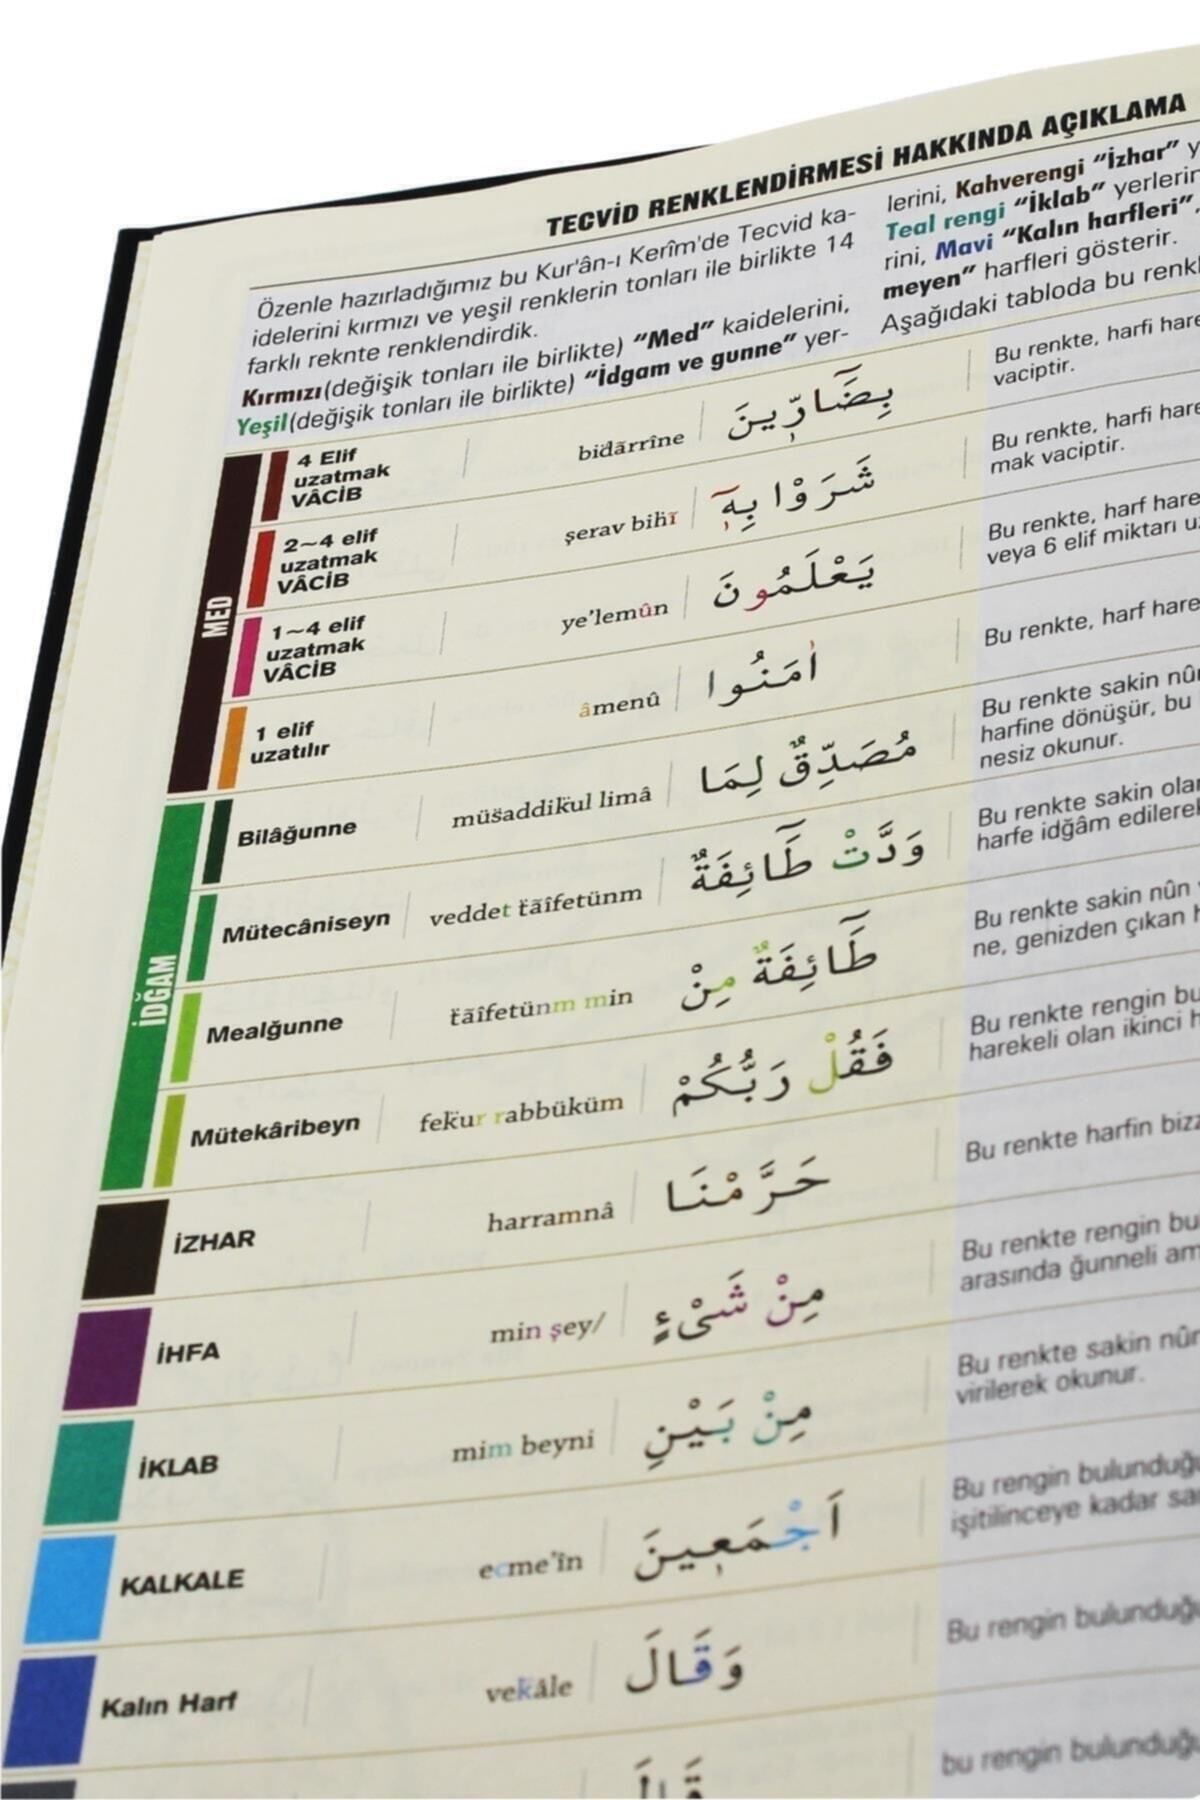 TECVİD RENKLENDİRMESİ HAKKINDA AÇIKLAMA
Özenle hazırladığımız bu Kur'ân-ı Kerîm'de Tecvid ka-
idelerini kırmızı ve yeşil renklerin tonları ile birlikte 14
farklı reknte renklendirdik.
Kırmızı(değişik tonları ile birlikte) “Med” kaidelerini,
Yeşil(değişik tonları ile birlikte) “İdgam ve gunne” yer-
lerini, Kahverengi “İzhar” y
Teal rengi “İklab” yerlerin
rini, Mavi “Kalın harfleri”,
meyen” harfleri gösterir.
Aşağıdaki tabloda bu renkl
MED
4 Elif
uzatmak
VÂCİB
bid̈ārrîne
بِضَٓارّ۪ينَ
Bu renkte, harfi hare
vaciptir.
2~4 elif
uzatmak
VÂCİB
şerav biḧī
شَرَوْا بِه۪ٓ
Bu renkte, harfi hare
mak vaciptir.
1~4 elif
uzatmak
VÂCİB
ye’lemûn
يَعْلَمُونَ
Bu renkte, harf hare
veya 6 elif miktarı u
1 elif
uzatılır
âmenû
اٰمَنُوا
Bu renkte, harf hare
İDĞAM
Bilâğunne
müs̈addik̈ul limâ
مُصَدِّقٌ لِمَا
Bu renkte sakin nûn
harfine dönüşür, bu
nesiz okunur.
Mütecâniseyn
veddet ẗāîfetünm
وَدَّتْ طَٓائِفَةٌ
Bu renkte sakin olan
harfe idğâm edilerek
Mealğunne
ẗāîfetünm min
طَٓائِفَةٌ مِنْ
Bu renkte sakin nûn
ne, genizden çıkan h
Mütekâribeyn
fek̈ur rabbüküm
فَقُلْ رَبُّكُمْ
Bu renkte rengin bu
harekeli olan ikinci h
İZHAR
harramnâ
حَرَّمْنَا
Bu renkte harfin bizz
İHFA
min şey/
مِنْ شَىْءٍ
Bu renkte rengin bu
arasında ğunneli am
İKLAB
mim beyni
مِنْ بَيْنِ
Bu renkte sakin nûn
virilerek okunur.
KALKALE
ecme’în
اَجْمَع۪ينَ
Bu rengin bulunduğu
işitilinceye kadar sa
Kalın Harf
vek̈âle
وَقَالَ
Bu rengin bulunduğu
قَالَ
bu rengin bulunduğu